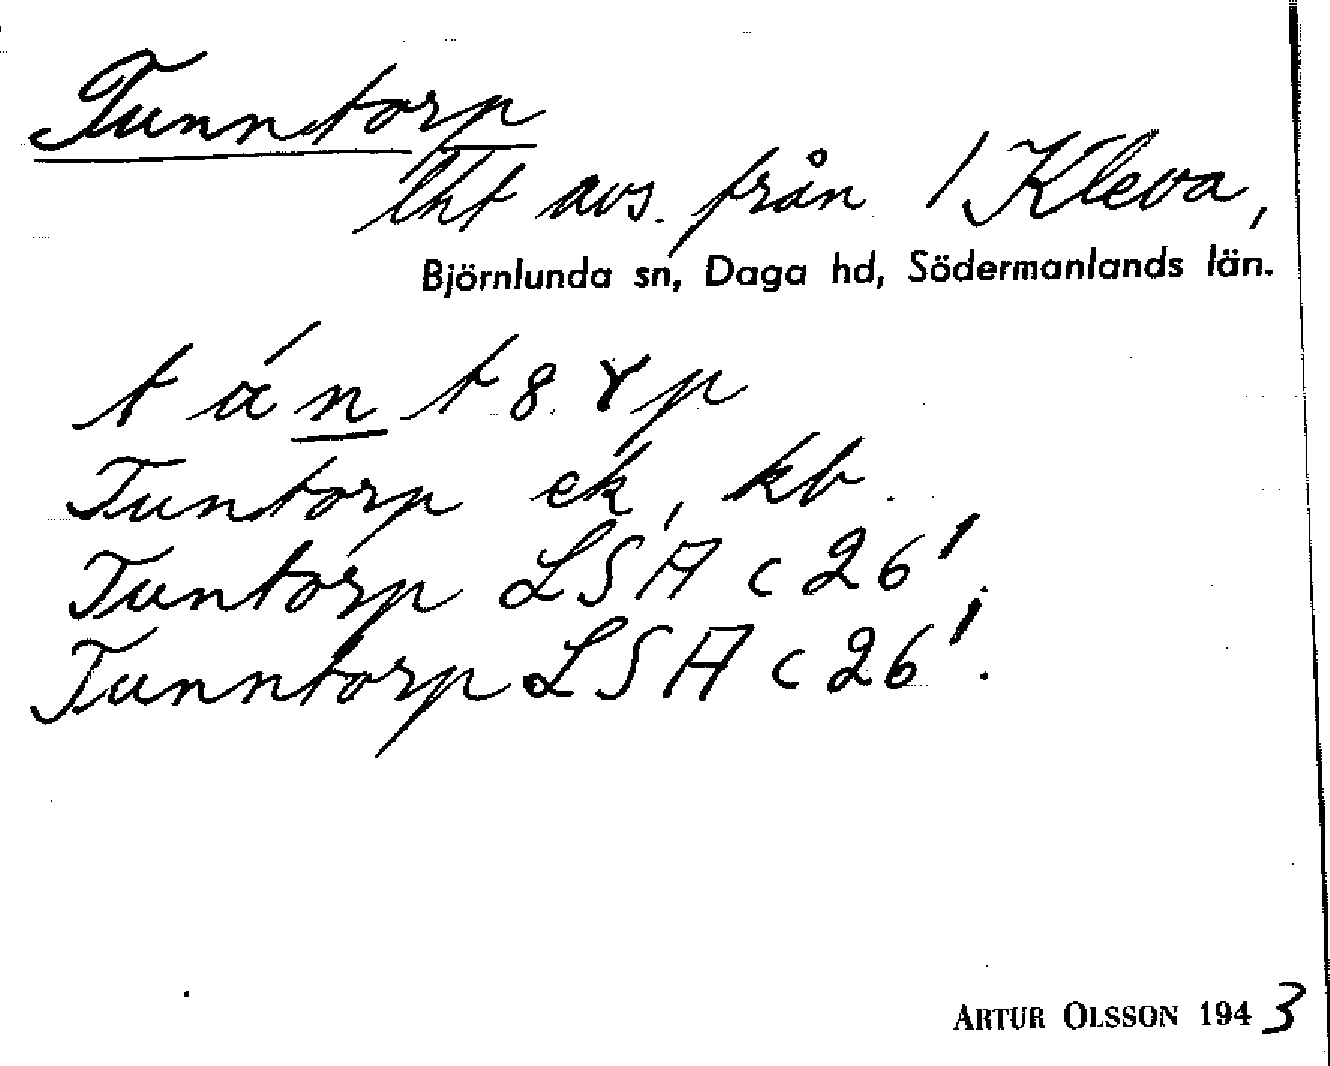 Tunntorp
lht avs. från 1 Kleva,
Björnlunda sn, Daga hd, Södermanlands län.
Tuntorp ek, kb.
Tuntorp LSA c 26¹.
Tunntorp LSA c 26¹.
ARTUR OLSSON 1943